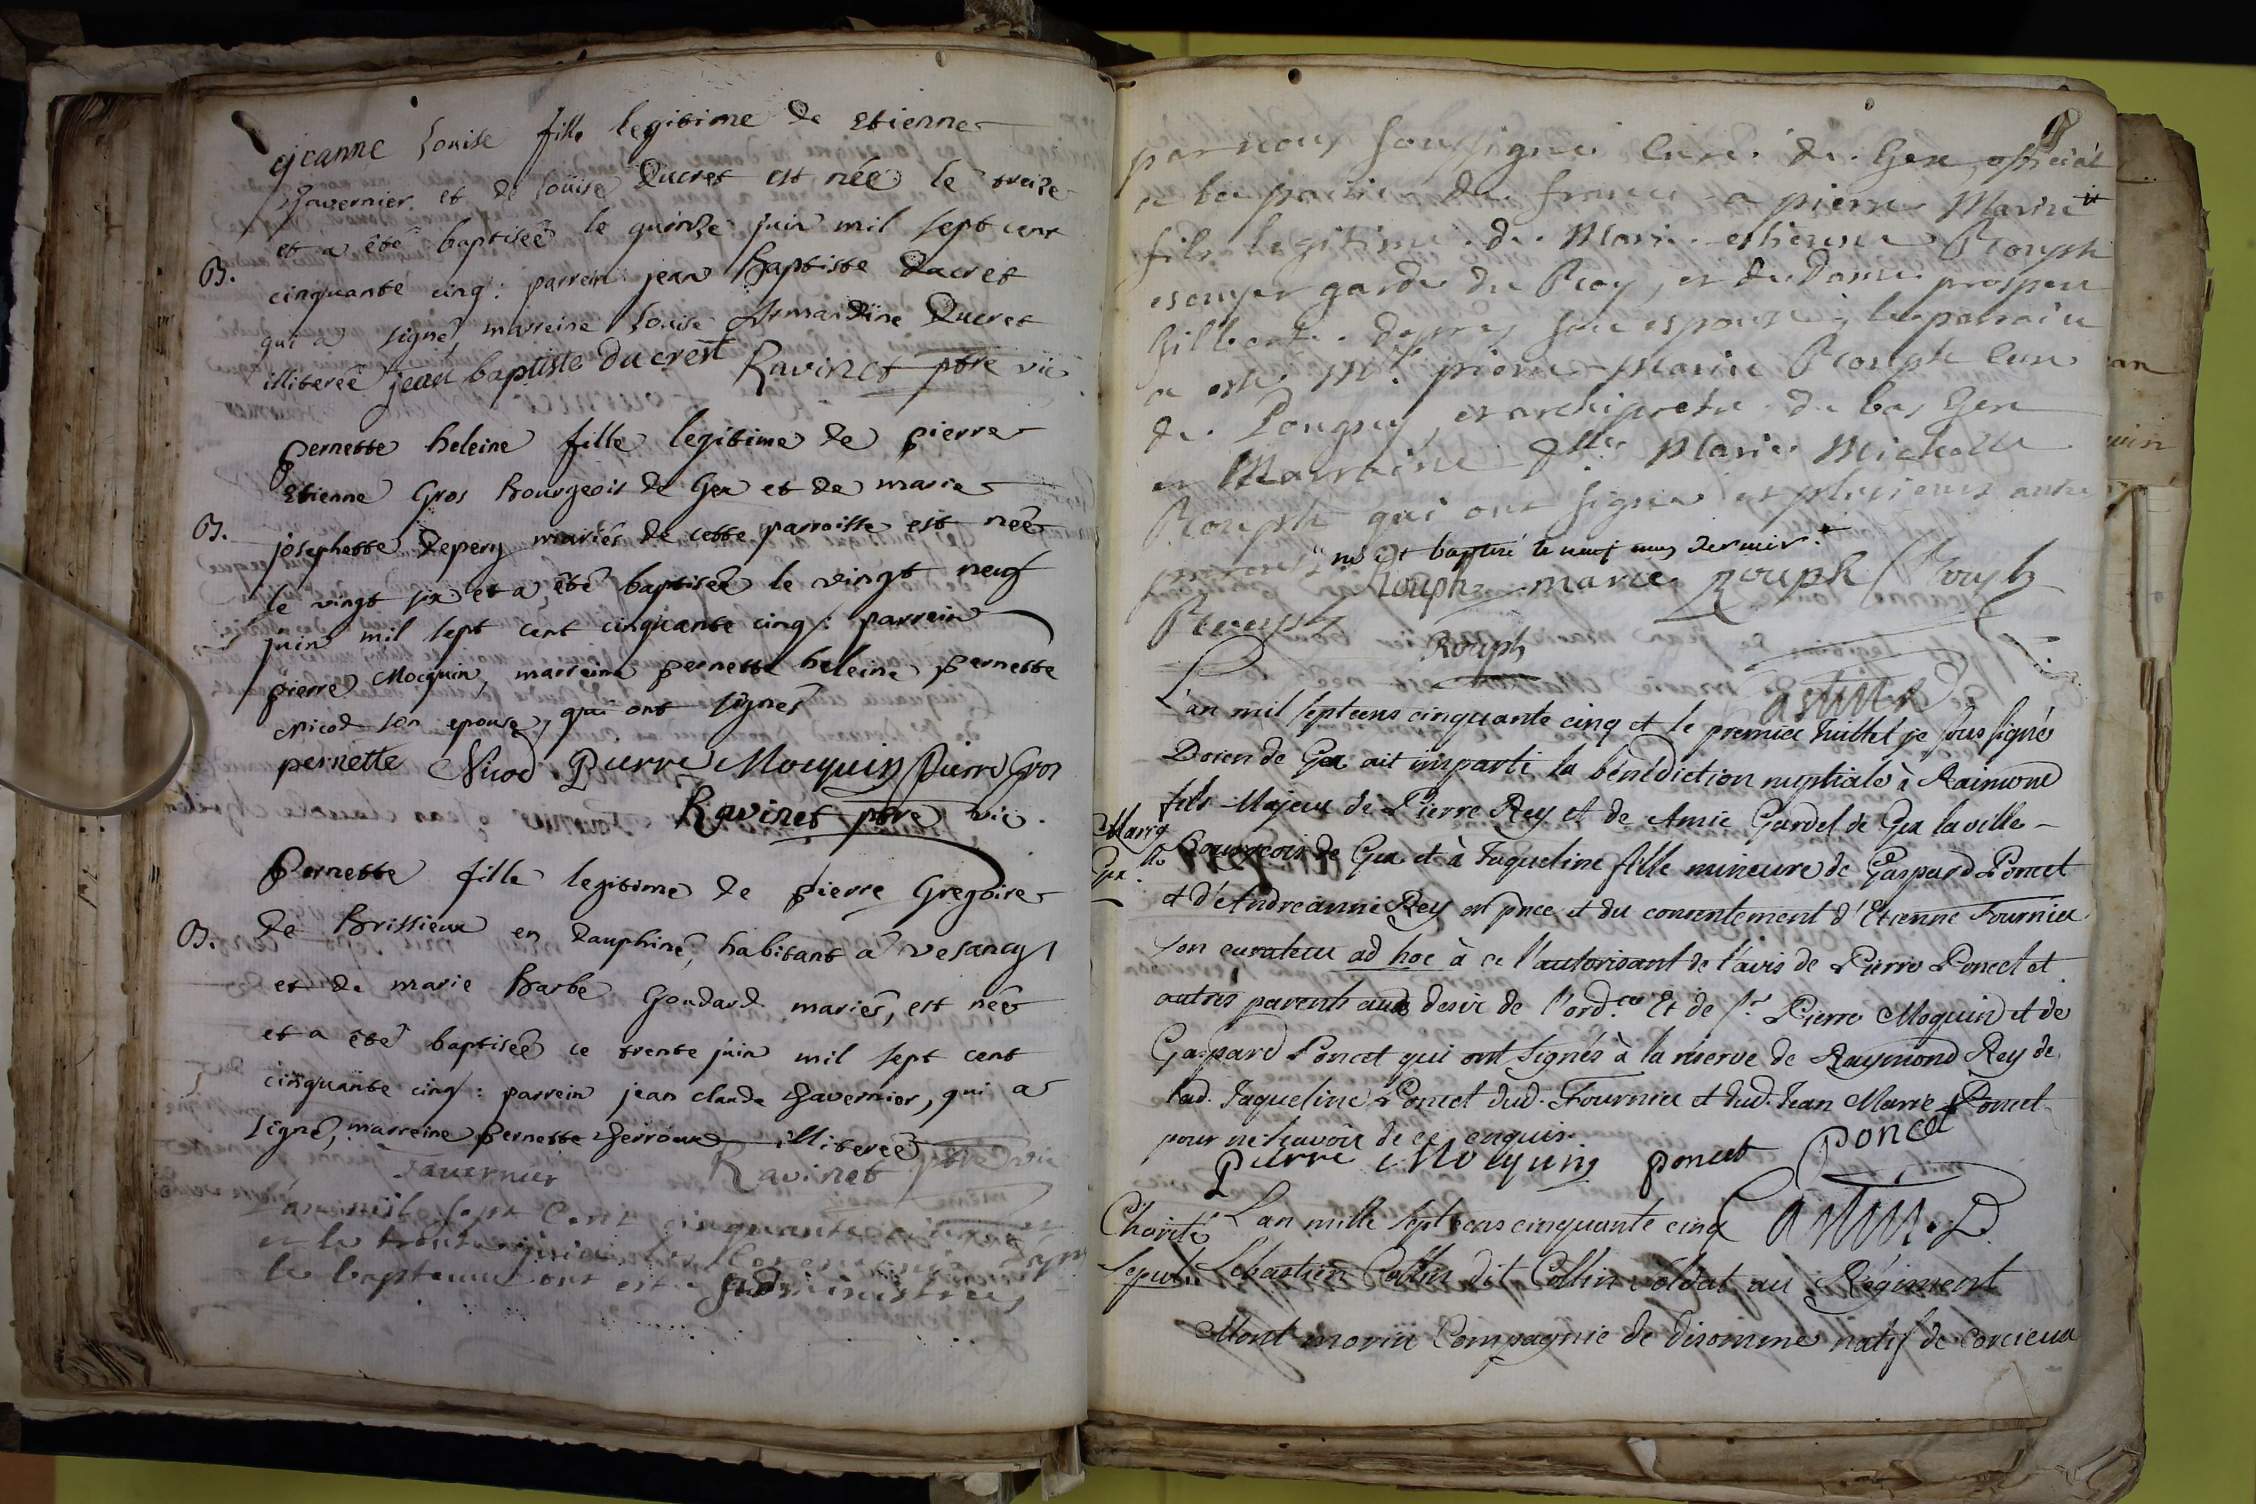 jeanne Louise fille legitime de Etienne
Tavernier et de Loüise Ducret est née le treize
et a êté baptisée le quinze juin mil sept cent
B.
cinquante cinq : parrein jean Baptiste Ducret
qui a signé, marreine Louise Armandine Ducret
illitereé jean baptiste ducrest Ravinet ptre vic
pernette heleine fille legitime de pierre
Etienne Gros Bourgeois de Gex et de marie
B.
josephette Depery mariés de cette parroisse est neê
le vingt six et a êté baptisée le vingt neuf
juin mil sept cent cinquante cinq : parrein
pierre Mocquin, marreine pernette heleine pernette
Nicod son epouse, qui ont signés
pernette Nicod Pierre Mocquin Pierre Gros
Ravinet ptre vic.
Pernette fille legitime de pierre Gregoire
B.
de Brissieux en Dauphiné, habitant a vesancy
et de marie Barbe Goudard mariés, est neê
et a êté baptisée ce trente juin mil sept cent
cinquante cinq : parrein jean claude Tavernier, qui a
signé, marreine pernette illitereé
Tavernier Ravinet ptre vic
L'an mil sept Cent cinquante
et le trente juin les
le bapteme ont esté administrées
par nous soussigné Curé de Gex, official
de la partie de france a pierre Marie
fils legitime de Marie estienne Rouph
escuyer garde du Roy, et de Dame prospere
Gilberte son espouse, le parrain
a esté Mr. pierre Marie Rouph Curé
de Pougny, et archipretre du bas Gex
et Marraine Dlle Marie Michelle
Rouph qui ont signé et plusieurs autre
parents né et baptisé le neuf may dernier
Rouph marie Rouph Rouph
Rouph
L'an mil septcens cinquante cinq et le premier Juillet je sous signé
Doien de Gex ait imparti la bénédiction nuptiale à Raimond
fils Majeur de Pierre Rey et de Amie Gardel de Gex la ville
Marig
Bourgeois de Gex et à Jaqueline fille mineure de Gaspard Poncet
Gex.
et d'Andreanne Rey en pnce et du consentement d'Etienne Fournier
son curateur ad hoc à ce l'autorisant de l'avis de Pierre Poncet et
autres parents au desir de l'ord.ce Et de Sr. Pierre Moquin et de
Gaspard Poncet qui ont signés à la réserve de Raymond Rey de
lad. Jaqueline Poncet dud. Fournier et dud. Jean Marie Poncet
pour ne sçavoir de ce enquis.
Pierre Mocquin poncet Poncet
Charité L'an mille septcens cinquante cinq
Sepult.re Sebastien Collin dit Collin soldat au Régiment
Mont morin Compagnie de disomme natif de Corcieux